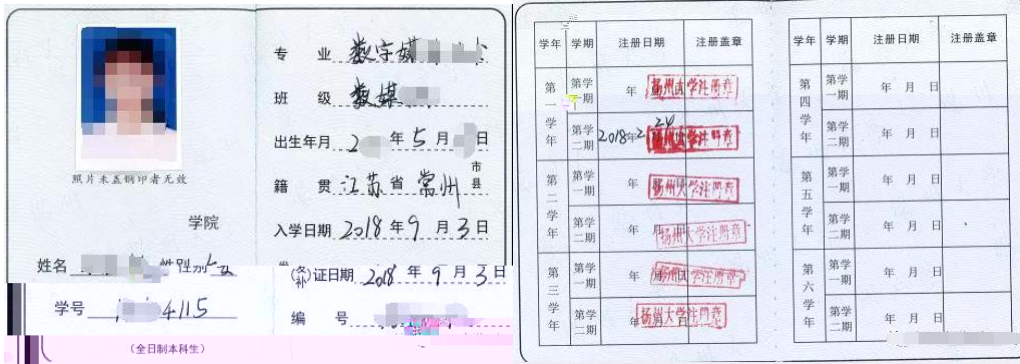 照片未盖钢印者无效
学院
姓名 性别 女
学号 4115
(全日制本科生)
专业 数字媒
班级 数媒
出生年月 2 年 5 月 日
籍贯 江苏省 常州 市县
入学日期 2018 年 9 月 3 日
(补)证日期 2018 年 9 月 3 日
编号
学年 学期 注册日期 注册盖章
第一学年 第学一期 年 月 扬州大学注册章
第学二期 2018 2 24 扬州大学注册章
第二学年 第学一期 年 扬州大学注册章
第学二期 年 扬州大学注册章
第三学年 第学一期 年 扬州大学注册章
第学二期 年 扬州大学注册章
学年 学期 注册日期 注册盖章
第四学年 第学一期 年 月 日
第学二期 年 月 日
第五学年 第学一期 年 月 日
第学二期 年 月 日
第六学年 第学一期 年 月 日
第学二期 年 月 日